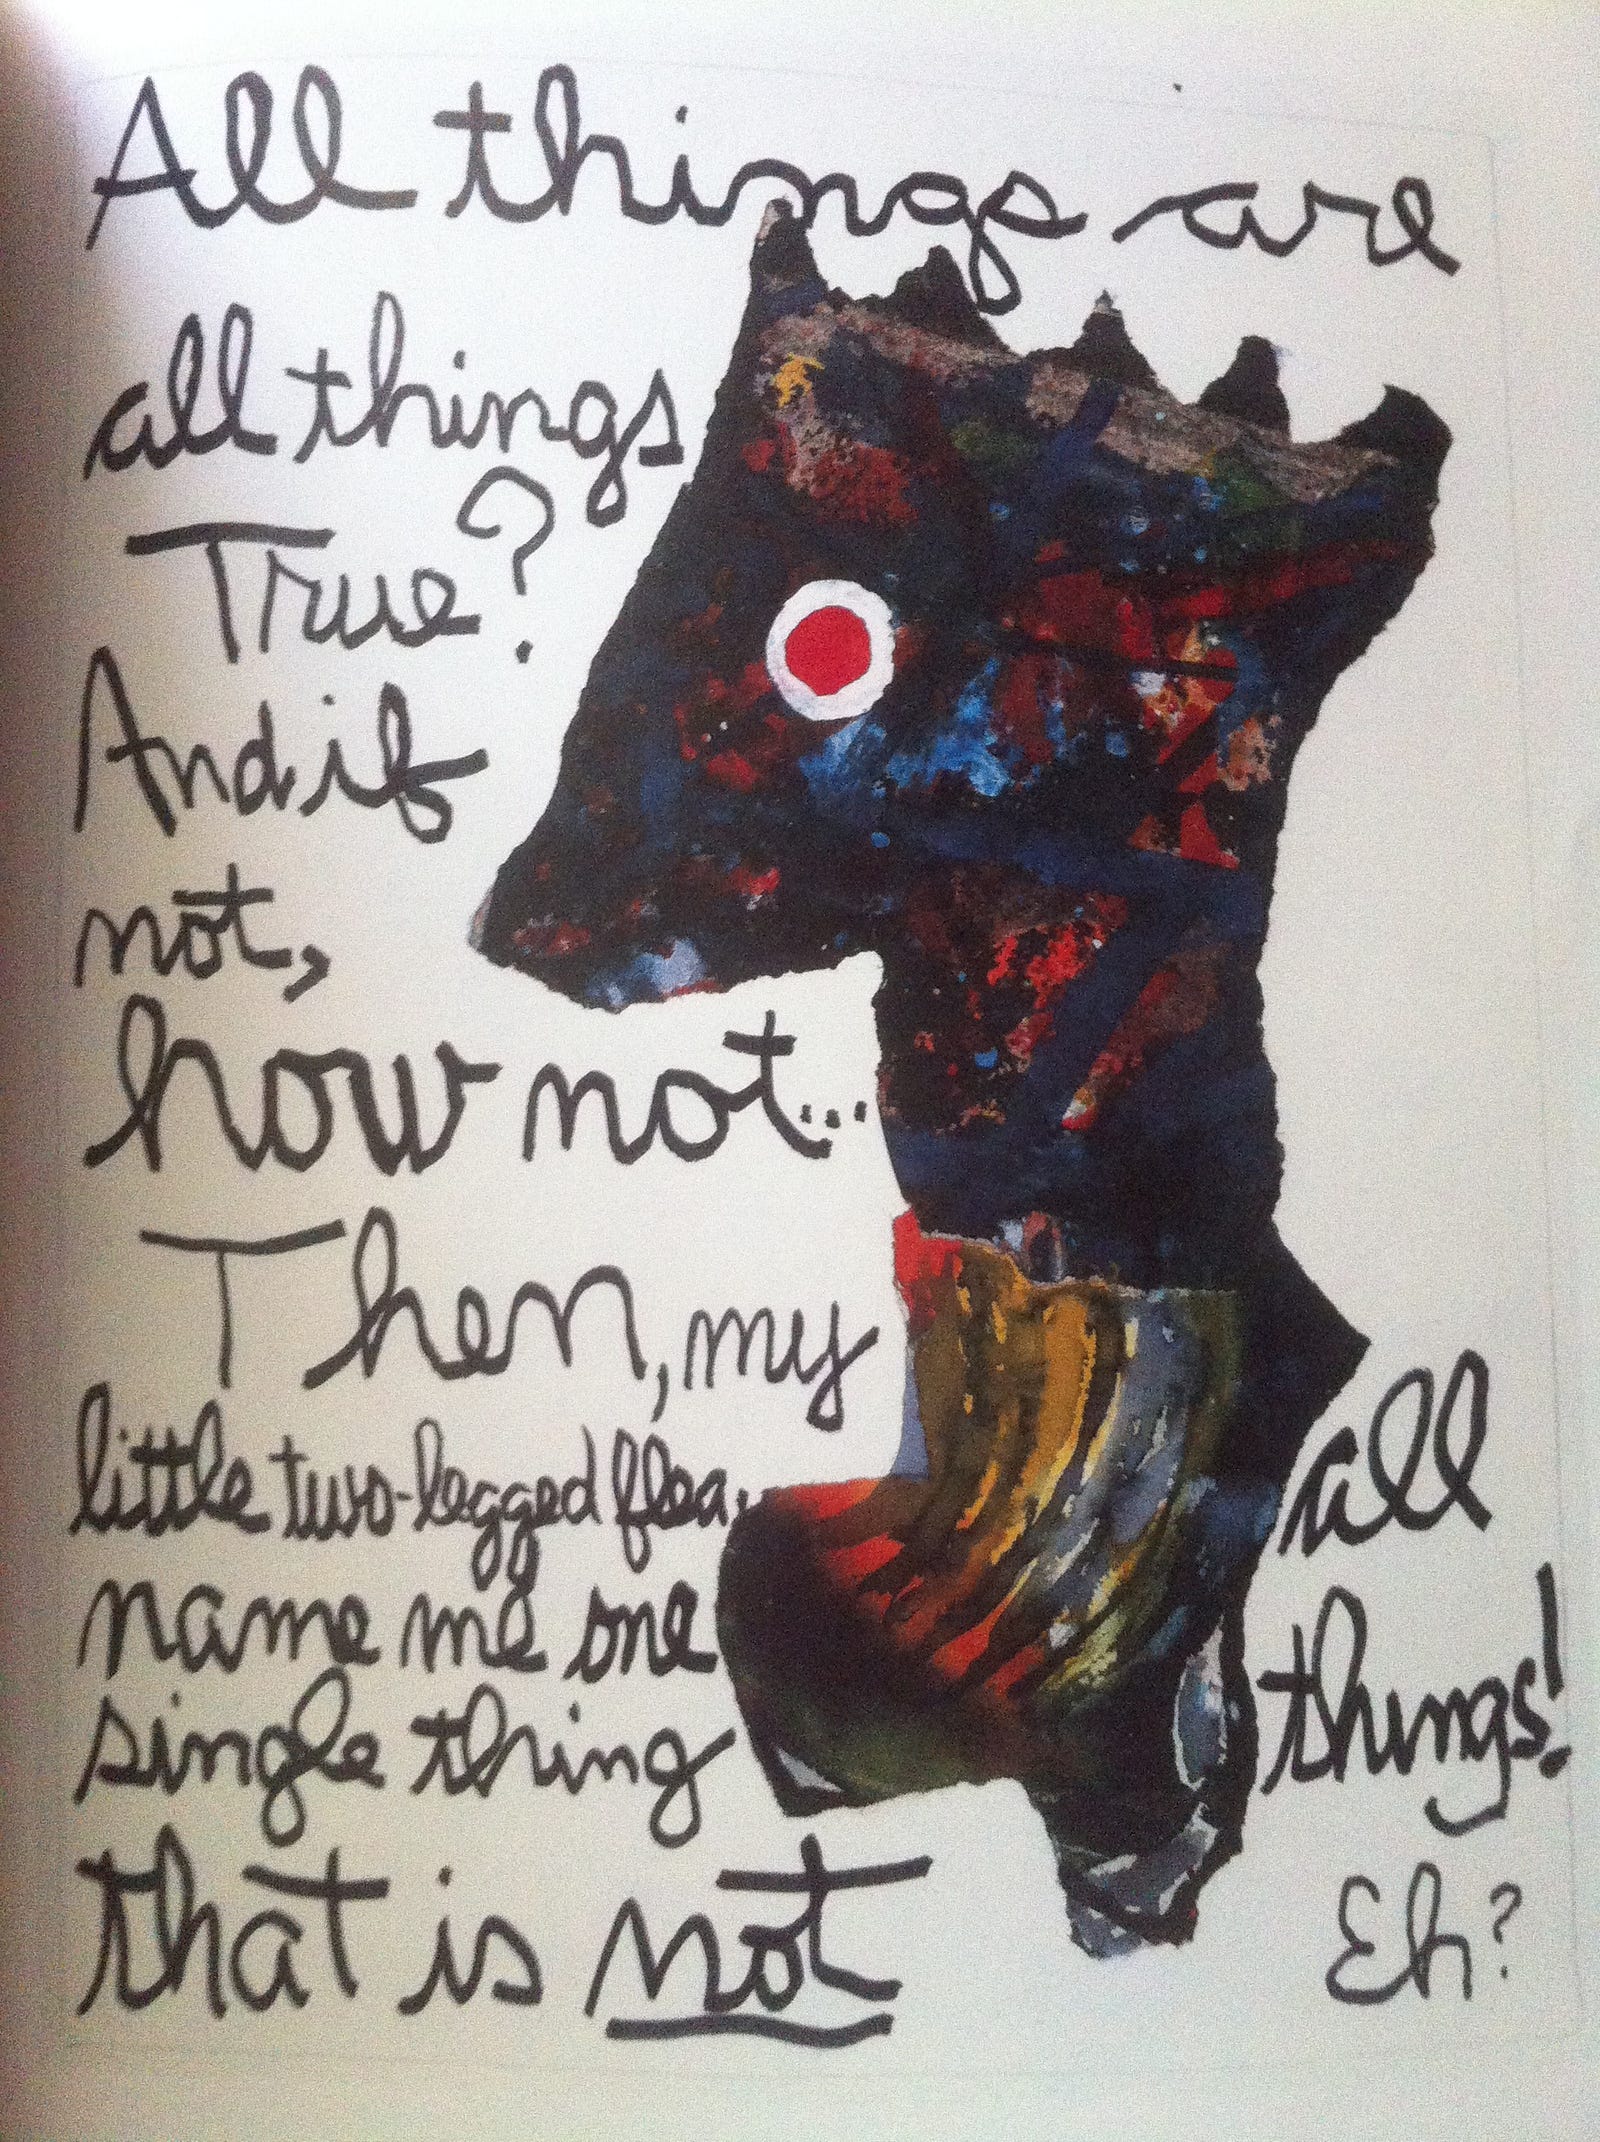 All things are
all things
True?
And if
not,
how not...
Then, my
little two-legged flea,
name me one
single thing
that is not
all
things!
Eh?